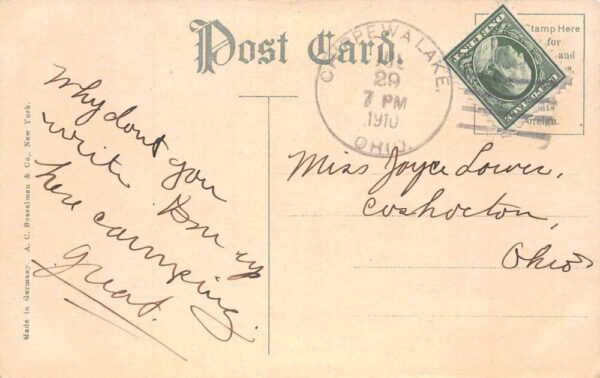 Post Card.
Stamp Here
for
and
CHIPPEWA LAKE,
29
7 PM
1910
OHIO.
ONE CENT
Why dont you
write. Am up
here camping.
Great.
Miss Joyce Lower,
Coshocton,
Ohio
Made in Germany. A. C. Bosselman & Co., New York.